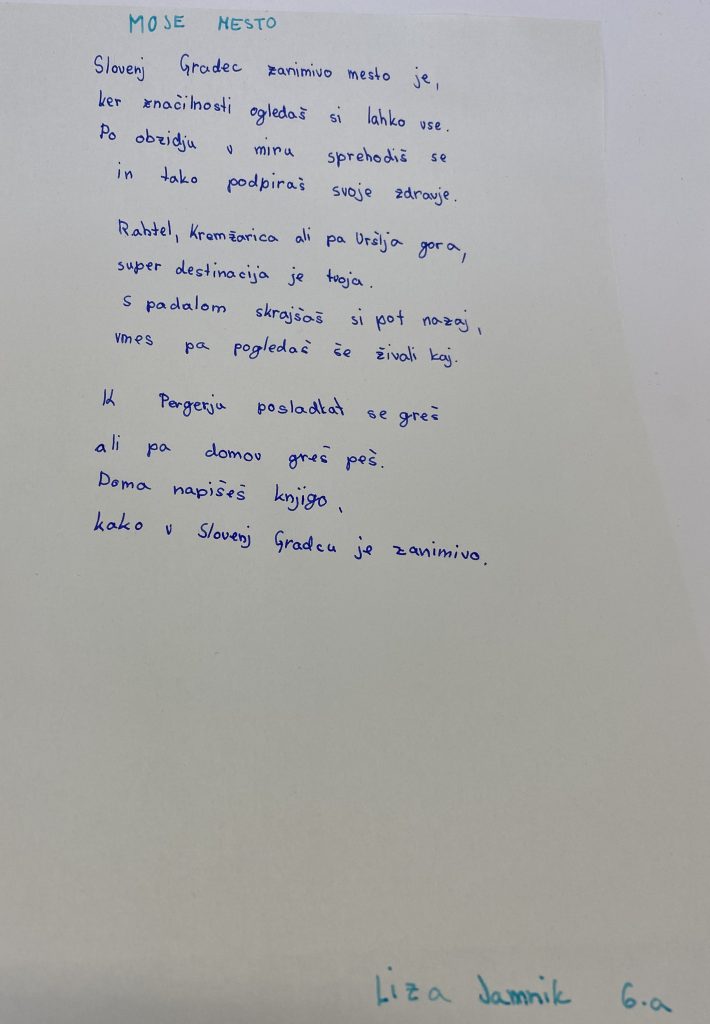 MOJE MESTO
Slovenj Gradec zanimivo mesto je,
ker značilnosti ogledaš si lahko vse.
Po obzidju v miru sprehodiš se
in tako podpiraš svoje zdravje.
Rahtel, Kremžarica ali pa Uršlja gora,
super destinacija je tvoja.
S padalom skrajšaš si pot nazaj,
vmes pa pogledaš še živali kaj.
K Pergerju posladkat se greš
ali pa domov greš peš.
Doma napišeš knjigo,
kako v Slovenj Gradcu je zanimivo.
Liza Jamnik 6.a